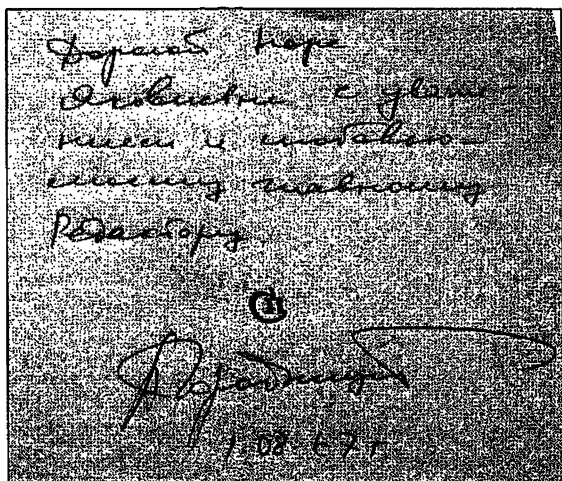 Дорогой Норе
Яковлевне с уваже-
нием и любовью
главному
Редактору.
1.08.67 г.